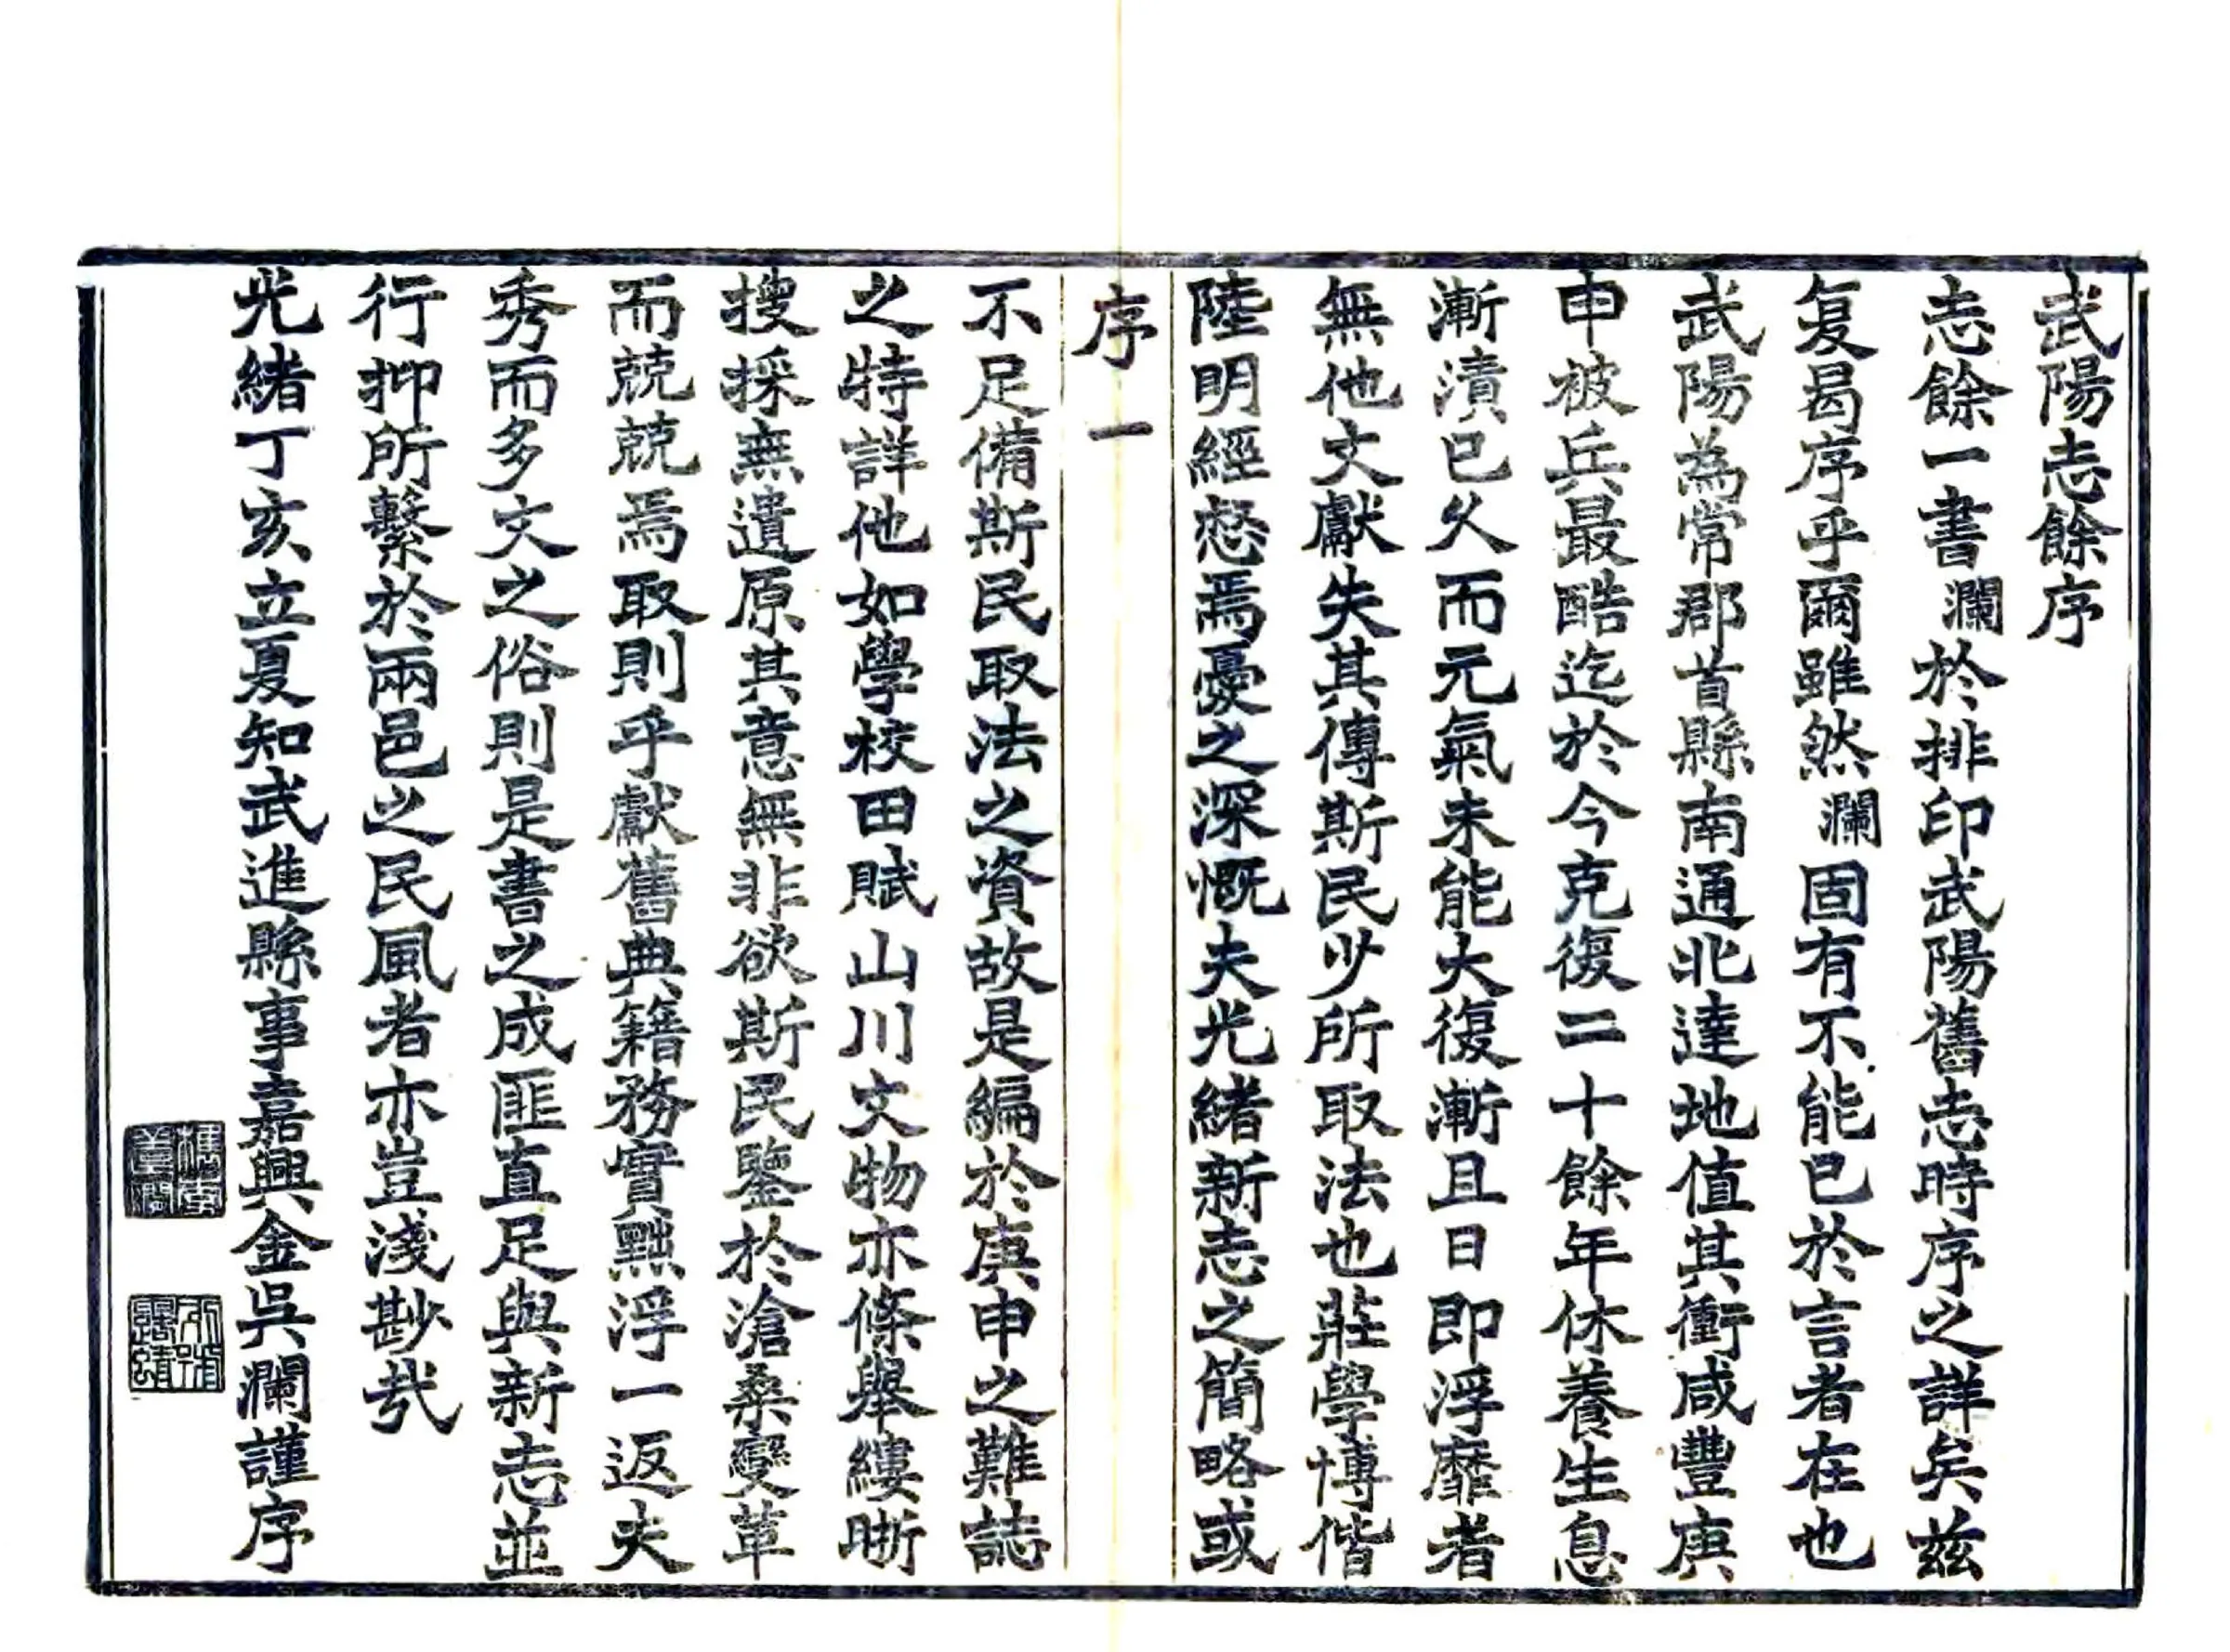 武陽志餘序
志餘一書瀾於排印武陽舊志時序之詳矣茲
复曷序乎爾雖然瀾固有不能已於言者在也
武陽為常郡首縣南通北達地值其衝咸豐庚
申被兵最酷迄於今克復二十餘年休養生息
漸漬已久而元氣未能大復漸且日即浮靡者
無他文獻失其傳斯民少所取法也莊學博偕
陸明經惄焉憂之深慨夫光緒新志之簡略或
序 一
不足備斯民取法之資故是編於庚申之難誌
之特詳他如學校田賦山川文物亦條舉縷晰
搜採無遺原其意無非欲斯民鑒於滄桑變革
而兢兢焉取則乎獻舊典籍務實黜浮一返夫
秀而多文之俗則是書之成匪直足與新志並
行抑所繫於兩邑之民風者亦豈淺尠哉
光緒丁亥立夏知武進縣事嘉興金吳瀾謹序